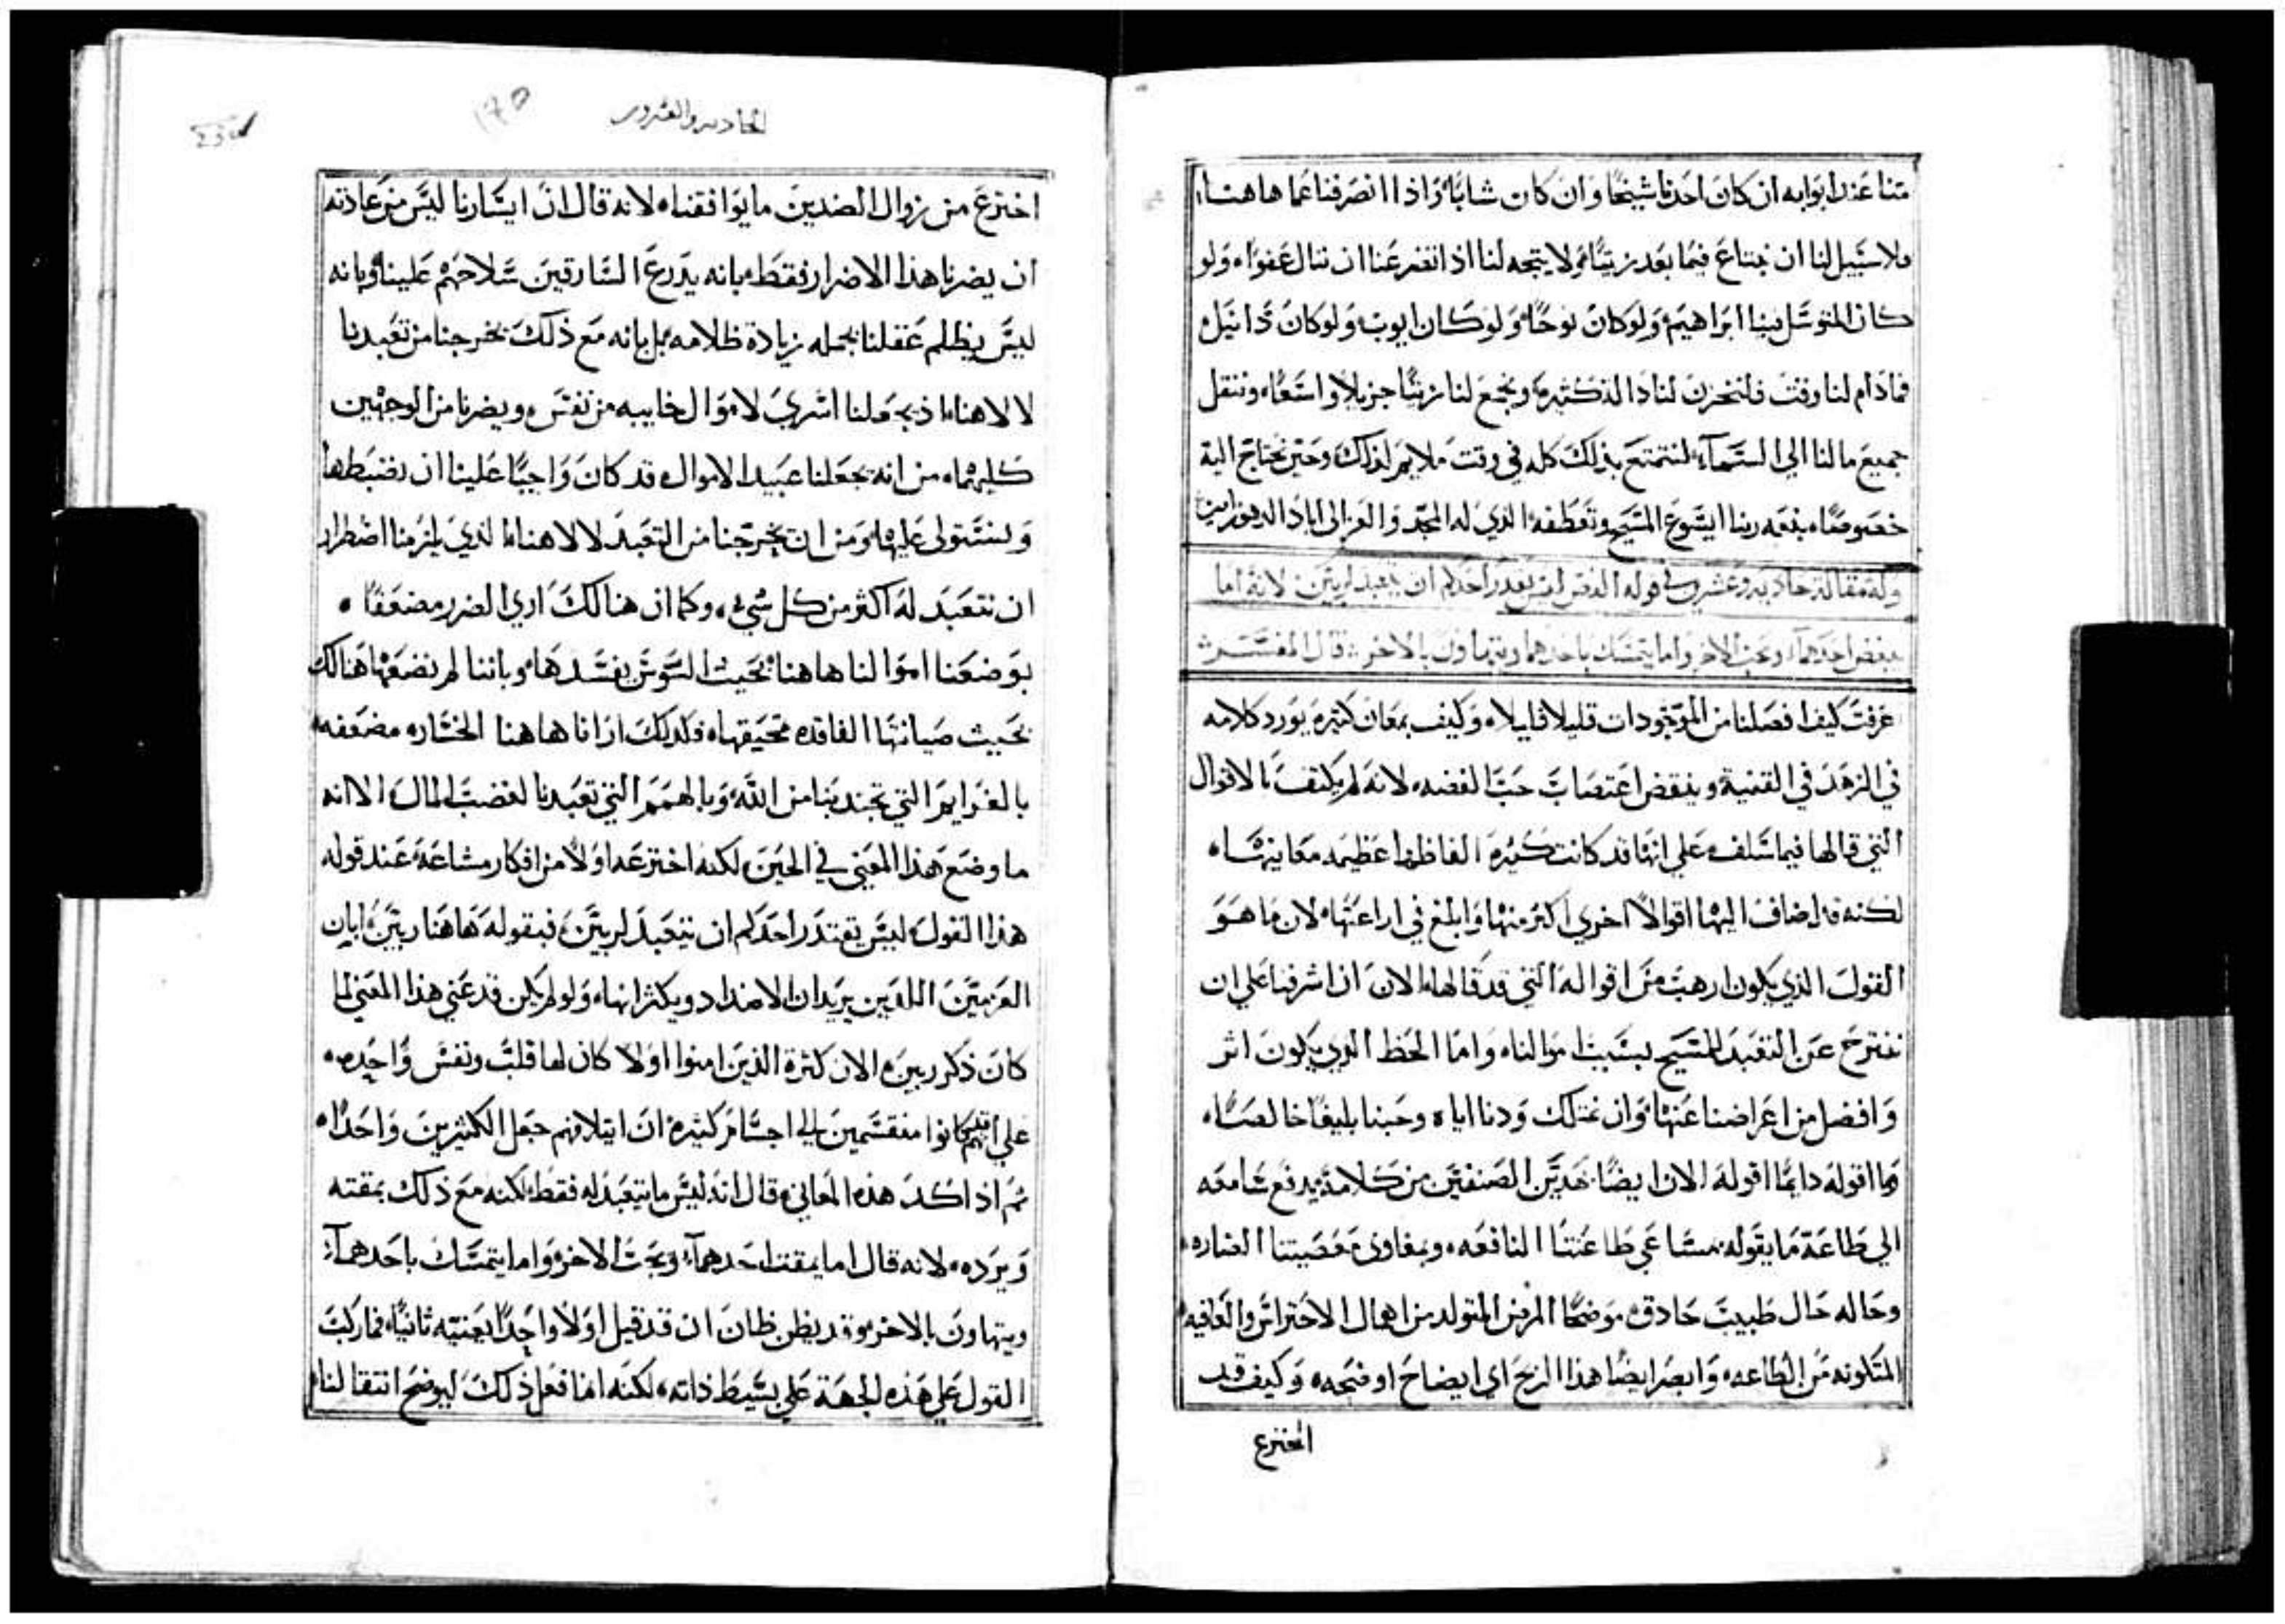 منا عند ابوابه ان كان احدنا شيخًا وان كان شابًا واذا انصرفنا عما هاهنا
فلا سبيل لنا ان نبتاع فيما بعد زيتًا ولا يتجه لنا اذا انتزعنا ان ننال عفوًا ولو
كان المتوسل فينا ابراهيم ولو كان نوحًا ولو كان ايوب ولو كان دانيل
فما دام لنا وقت فلنخزن لنا دالة كثيره ونجمع لنا زيتًا جزيلاً واسعًا وننقل
جميع مالنا الي السماء لنتمتع بذلك كله في وقت ملايم لذلك وحين نحتاج اليه
خصوصًا بنعمه ربنا ايسوع المسيح وتعطفه الذي له المجد والعز الى اباد الدهور امين
وله مقالة حاديه وعشرين في قوله الفص ليس يقدر احدكم ان يتعبد لربين لانه اما
يبغض احدهما ويحب الاخر واما يتمسك باحدهما ويتهاون بالاخر قال المفسر
عرفت كيف افصلنا من الموجودات قليلا قليلا وكيف بمعان كثيره يورد كلامه
في الزهد في القنية وينقض اغتصاب حب الفضه لانه لم يكتف بالاقوال
التي قالها فيما سلف علي انها قد كانت كثيره الفاظها عظيمه معانيها
لكنه قد اضاف اليها اقوالاً اخري اكثر منها وابلغ في اراعتها لان ما هو
القول الذي يكون ارهب من اقواله التي قد قالها الان ان اشرفنا علي ان
نخترج عن التعبد للمسيح بسبب اموالنا واما الحظ الذي يكون اثر
وافضل من اعراضنا عنها وان نمتلك ودنا اياه وحبنا بليغًا خالصًا
وما اقوله دايمًا اقوله الان ايضًا بهذين الصنفين من كلامه يدفع سامعه
الي طاعة ما يقوله بمساعي طاعتنا النافعه وبمغاوي معصيتنا الضاره
وحاله حال طبيب حاذق موضحًا المرض المتولد من اهمال الاحتراس والعافيه
المتكونه من الطاعه وابصر ايضًا هذا الربح اي ايضاح اوضحه وكيف قد
اخترع
الحاديه والعشرون
١٢٥
اخترع من زوال الضدين ما يوافقنا لانه قال ان ايسارنا ليس من عادته
ان يضرنا هذا الاضرار فقط بانه يدرع السارقين سلاحهم علينا وبانه
ليس يظلم عقلنا بجمله زيادة ظلامه بل بانه مع ذلك يخرجنا من تعبدنا
لالاهنا اذ يجعلنا اسري لاموال خايبه من نفس ويضرنا من الوجهين
كليهما من انه يجعلنا عبيدا لاموال قد كان واجبًا علينا ان نضبطها
ونستولي عليها ومن ان يخرجنا من التعبد لالاهنا الذي يلزمنا اضطرار
ان نتعبد له اكثر من كل شي وكما ان هنالك اري الضرر مضعفًا
بوضعنا اموالنا هاهنا بحيث السوس يفسدها وباننا لم نضعها هنالك
بحيث صيانتها الفاقده تحيقها فكذلك ارانا هاهنا الخساره مضعفه
بالغرايم التي تجتذبنا من الله وبالهمم التي تعبدنا لغضب المال الا انه
ما وضع هذا المعني في الحين لكنه اخترعه اولاً من افكار مشاعة عند قوله
هذا القول ليس يقتدر احدكم ان يتعبد لربين فبقوله هاهنا ربين ابان
الغريمين اللذين يريدان الاضداد ويكثرانها ولو لم يكن قد عني هذا المعني لما
كان ذكر ربين الان كثرة الذين امنوا اولا كان لها قلب ونفس واحده
علي انهم كانوا منقسمين الي اجسام كثيره ان ايتلافهم جعل الكثيرين واحدًا
ثم اذ اكد هذه المعاني قال انه ليس ما يتعبد له فقط لكنه مع ذلك يمقته
ويرده لانه قال اما يمقت احدهما ويحب الاخر واما يتمسك باحدهما
ويتهاون بالاخر وقد يظن ظان ان قد قيل اولاً واحدًا بعينه ثانيًا فما ركب
القول علي هذه الجهة علي بسيط ذاته لكنه انما فعل ذلك ليوضح انتقالنا